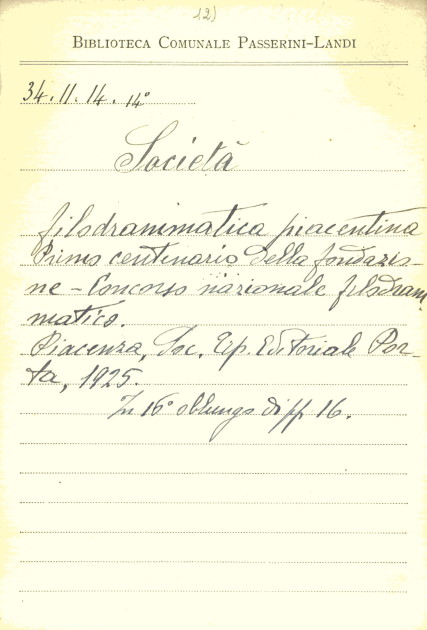 12)
BIBLIOTECA COMUNALE PASSERINI-LANDI
34.11.14. 14°
Società
filodrammatica piacentina
Primo centenario della fondazio-
ne - Concorso nazionale filodram
matico.
Piacenza, Soc. Tip. Editoriale Por-
ta, 1925.
In 16° oblungo di pp 16.